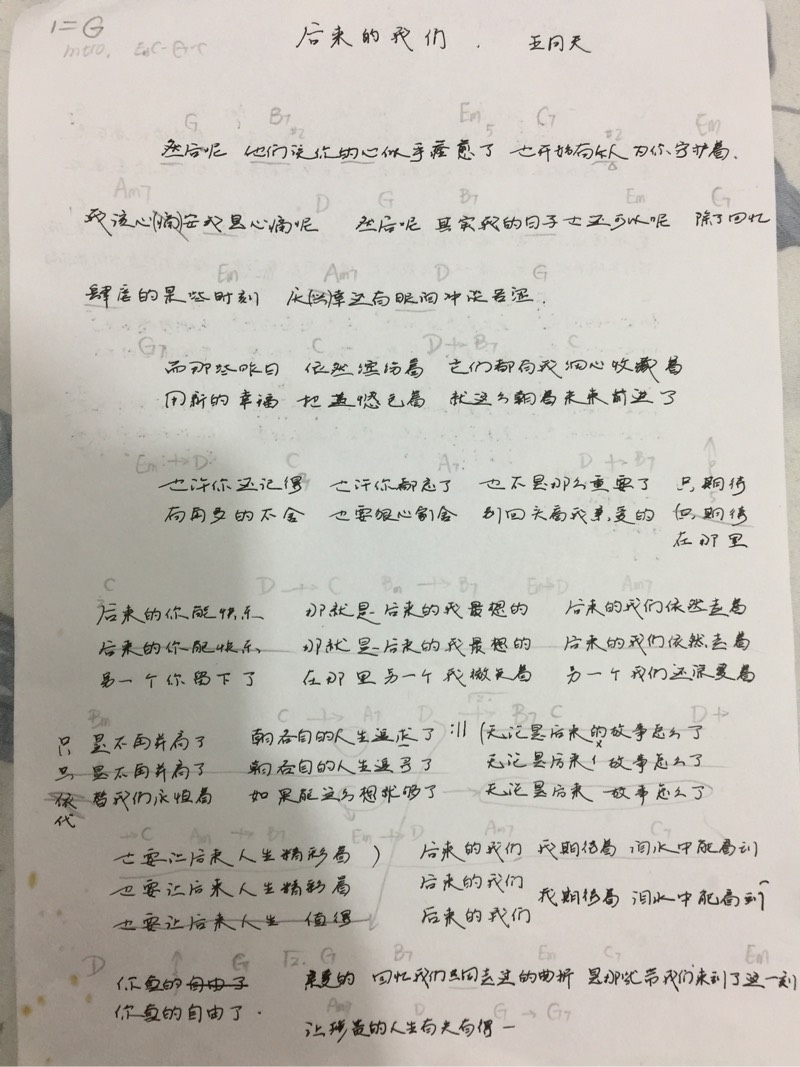 1=G 后来的我们 . 五月天
intro. Em C - G - C
G B7 #2 Em 5 C7 #2 Em
然后呢 他们说你的心似乎痊愈了 也开始有个人为你守护着.
Am7 D G B7 Em C7
我该心(痛)安或是心痛呢 然后呢 其实我的日子也还可以呢 除了回忆
Em Am7 D G
肆虐的某些时刻 庆幸还有眼泪冲淡苦涩.
G7 C D→B7 C
而那些昨日 依然缤纷着 它们都有我细心收藏着
用新的幸福 把遗憾包着 就这么朝着未来前进了
Em→D C A7 D→B7
也许你还记得 也许你都忘了 也不是那么重要了 只期待
有再多的不舍 也要狠心割舍 别回头看我亲爱的 但,期待
在那里
C D→C Bm→B7 Em→D Am7
后来的你能快乐 那就是后来的我最想的 后来的我们依然走着
后来的你能快乐 那就是后来的我最想的 后来的我们依然走着
另一个你留下了 在那里另一个我微笑着 另一个我们还深爱着
Bm C→A7 D→B7 C D→
只是不再并肩了 朝各自的人生追求了 :|| (无论是后来的故事怎么了
只是不再并肩了 朝各自的人生追寻了 无论是后来 故事怎么了
依代替我们永恒着 如果能这么想就够了 无论是后来 故事怎么了
→C Am→B7 Em→D Am7 C7
也要让后来人生精彩着 ) 后来的我们 我期待着 泪水中能看到
也要让后来人生精彩着 后来的我们 我期待着 泪水中能看到
也要让后来人生 值得 后来的我们
D G 2. G B7 Em C7 Em
你真的自由了 亲爱的 回忆我们共同走过的曲折 是那些带我们来到了这一刻
你真的自由了. Am7 D G→G7
让珍贵的人生有失有得一